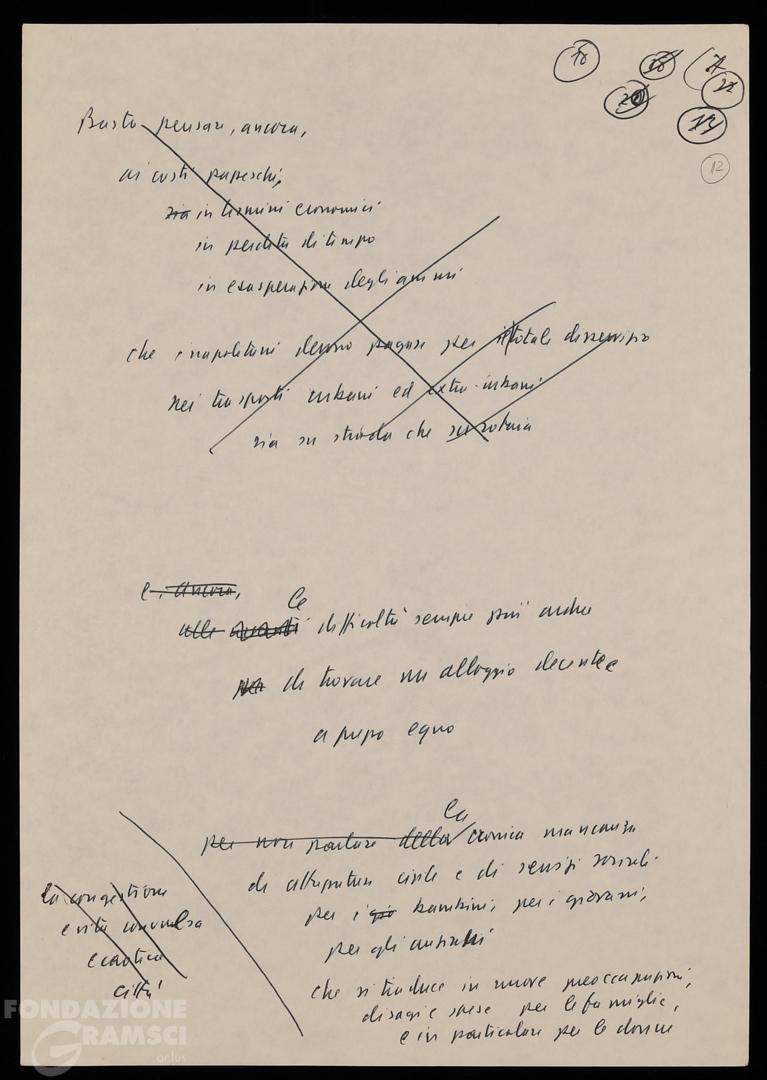 18
16
7
22
20
13
12
Basta pensare, ancora,
ai costi
sia in termini economici
in perdita di tempo
in esasperazione degli animi
che i napoletani devono pagare per il totale disservizio
nei trasporti urbani ed extra-urbani
sia su strada che su rotaia
e, ancora,
le
alle difficoltà sempre più ardue
per di trovare un alloggio decente e
a prezzo equo
la
per non parlare della cronica mancanza
di attrezzature civili e di servizi sociali
per i bambini, per i giovani,
per gli anziani
che si traduce in nuove preoccupazioni,
disagi e spese per le famiglie,
e in particolare per le donne
la congestione
e vita convulsa
e caotica
città
FONDAZIONE
GRAMSCI
onlus